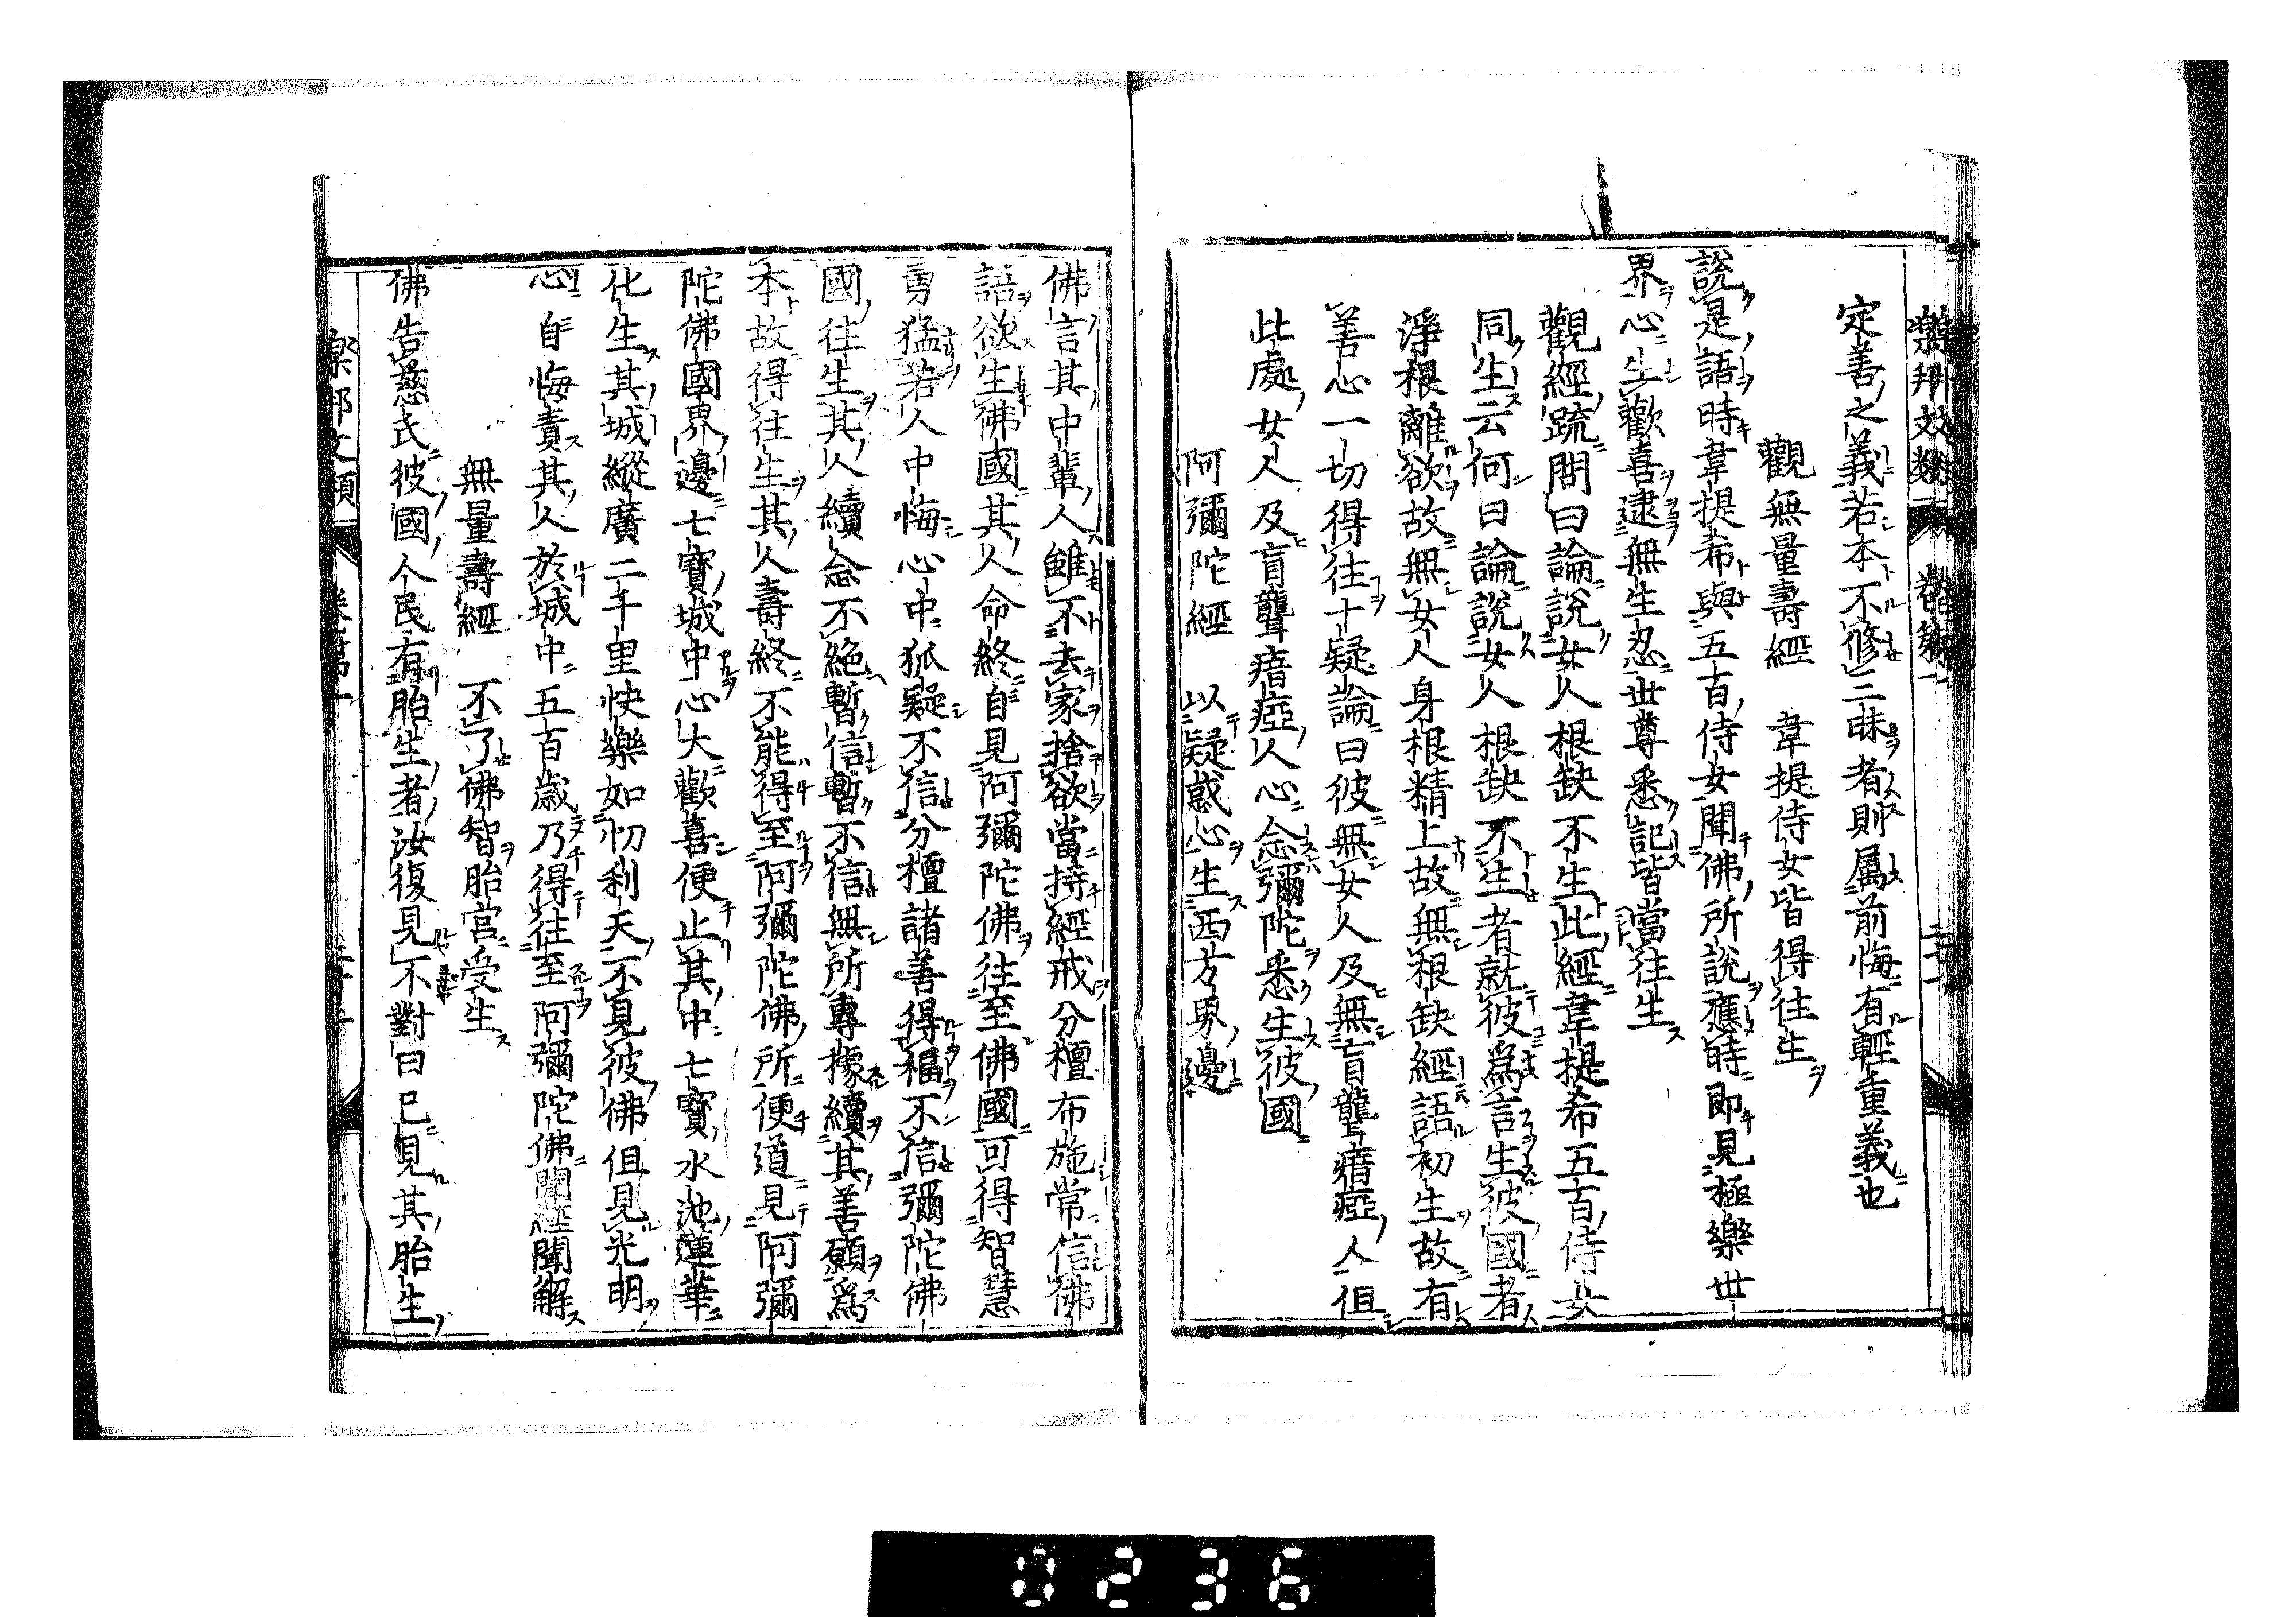 定善之義若本不修三昧者則属前悔有輕重義也
觀無量壽經　韋提侍女皆得往生
説是語時韋提希與五百侍女聞佛所説應時即見極樂世
界心生歡喜逮無生忍世尊悉記皆當往生
觀經疏問曰論説女人根缺不生此經韋提希五百侍女
同生云何曰論説女人根缺不生者就彼爲言生彼國者
淨根離欲故無女人身根精上故無根缺經語初生故有
善心一切得往十疑論曰彼無女人及無盲聾瘖瘂人但
此處女人及盲聾瘖瘂人心念彌陀悉生彼國
阿彌陀經　以疑惑心生西方界邊
佛言其中輩人雖不去家捨欲當持經戒分檀布施常信佛
語欲生佛國其人命終自見阿彌陀佛往至佛國可得智慧
勇猛若人中悔心中狐疑不信分檀諸善得福不信彌陀佛
國往生其人續念不絶暫信暫不信無所專據續其善願爲
本故得往生其人壽終不能得至阿彌陀佛所便道見阿彌
陀佛國界邊七寳城中心大歡喜便止其中七寳水池蓮華
化生其城縱廣二千里快樂如忉利天不見彼佛但見光明
心自悔責其人於城中五百歳乃得往至阿彌陀佛聞經聞解
無量壽經　不了佛智胎宮受生
佛告慈氏彼國人民有胎生者汝復見不對曰已見其胎生
樂邦文類　卷第一
0236